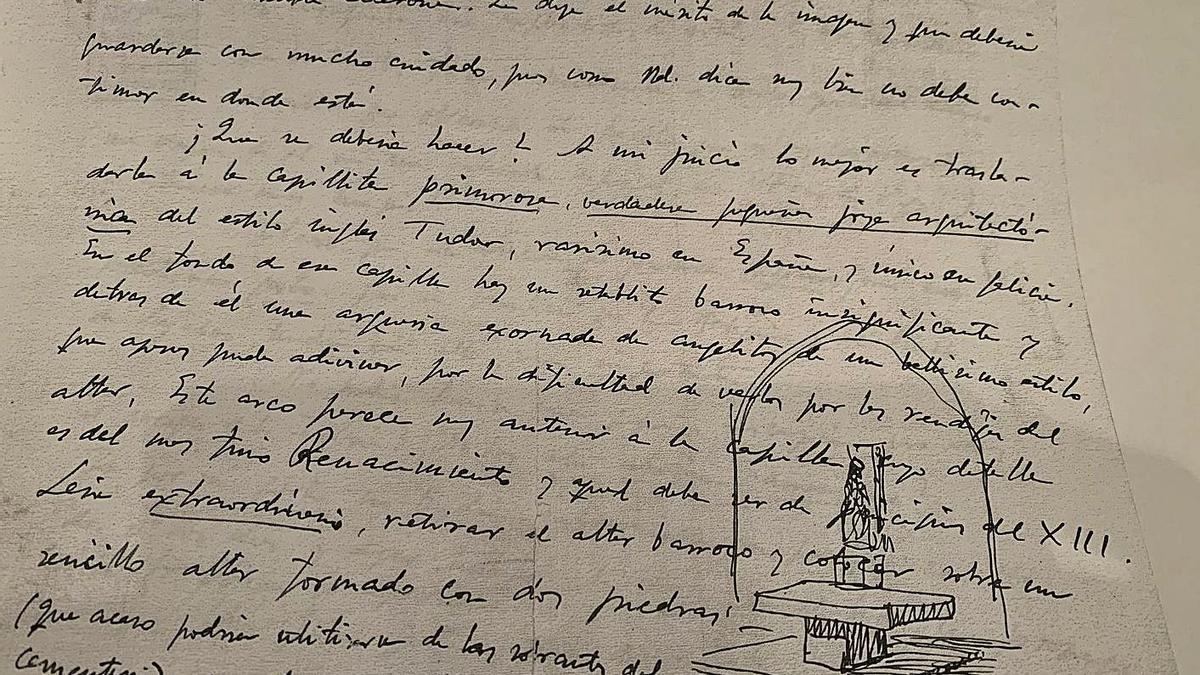 Le dije el mérito de la imagen y que debería
guardarse con mucho cuidado, pues como Vd. dice muy bien no debe con-
tinuar en donde está.
¡Que se debería hacer! A mi juicio lo mejor es trasla-
darla á la capillita primorosa, verdadera pequeña joya arquitectó-
nica del estilo inglés Tudor, rarísimo en España, y único en Galicia.
En el fondo de esa capilla hay un retablito barroco insignificante y
detras de él una arqueria exornada de angelitos de un bellísimo estilo,
que apenas pude adivinar, por la dificultad de verlos por las rendijas del
altar. Este arco parece muy anterior á la capilla cuyo detalle
es del mas fino Renacimiento y aquel debe ser de principios del XIII.
Sería extraordinario, retirar el altar barroco y colocar sobre un
sencillo altar formado con dos piedras,
(que acaso podrían utilizarse de las sobrantes del
cementerio)